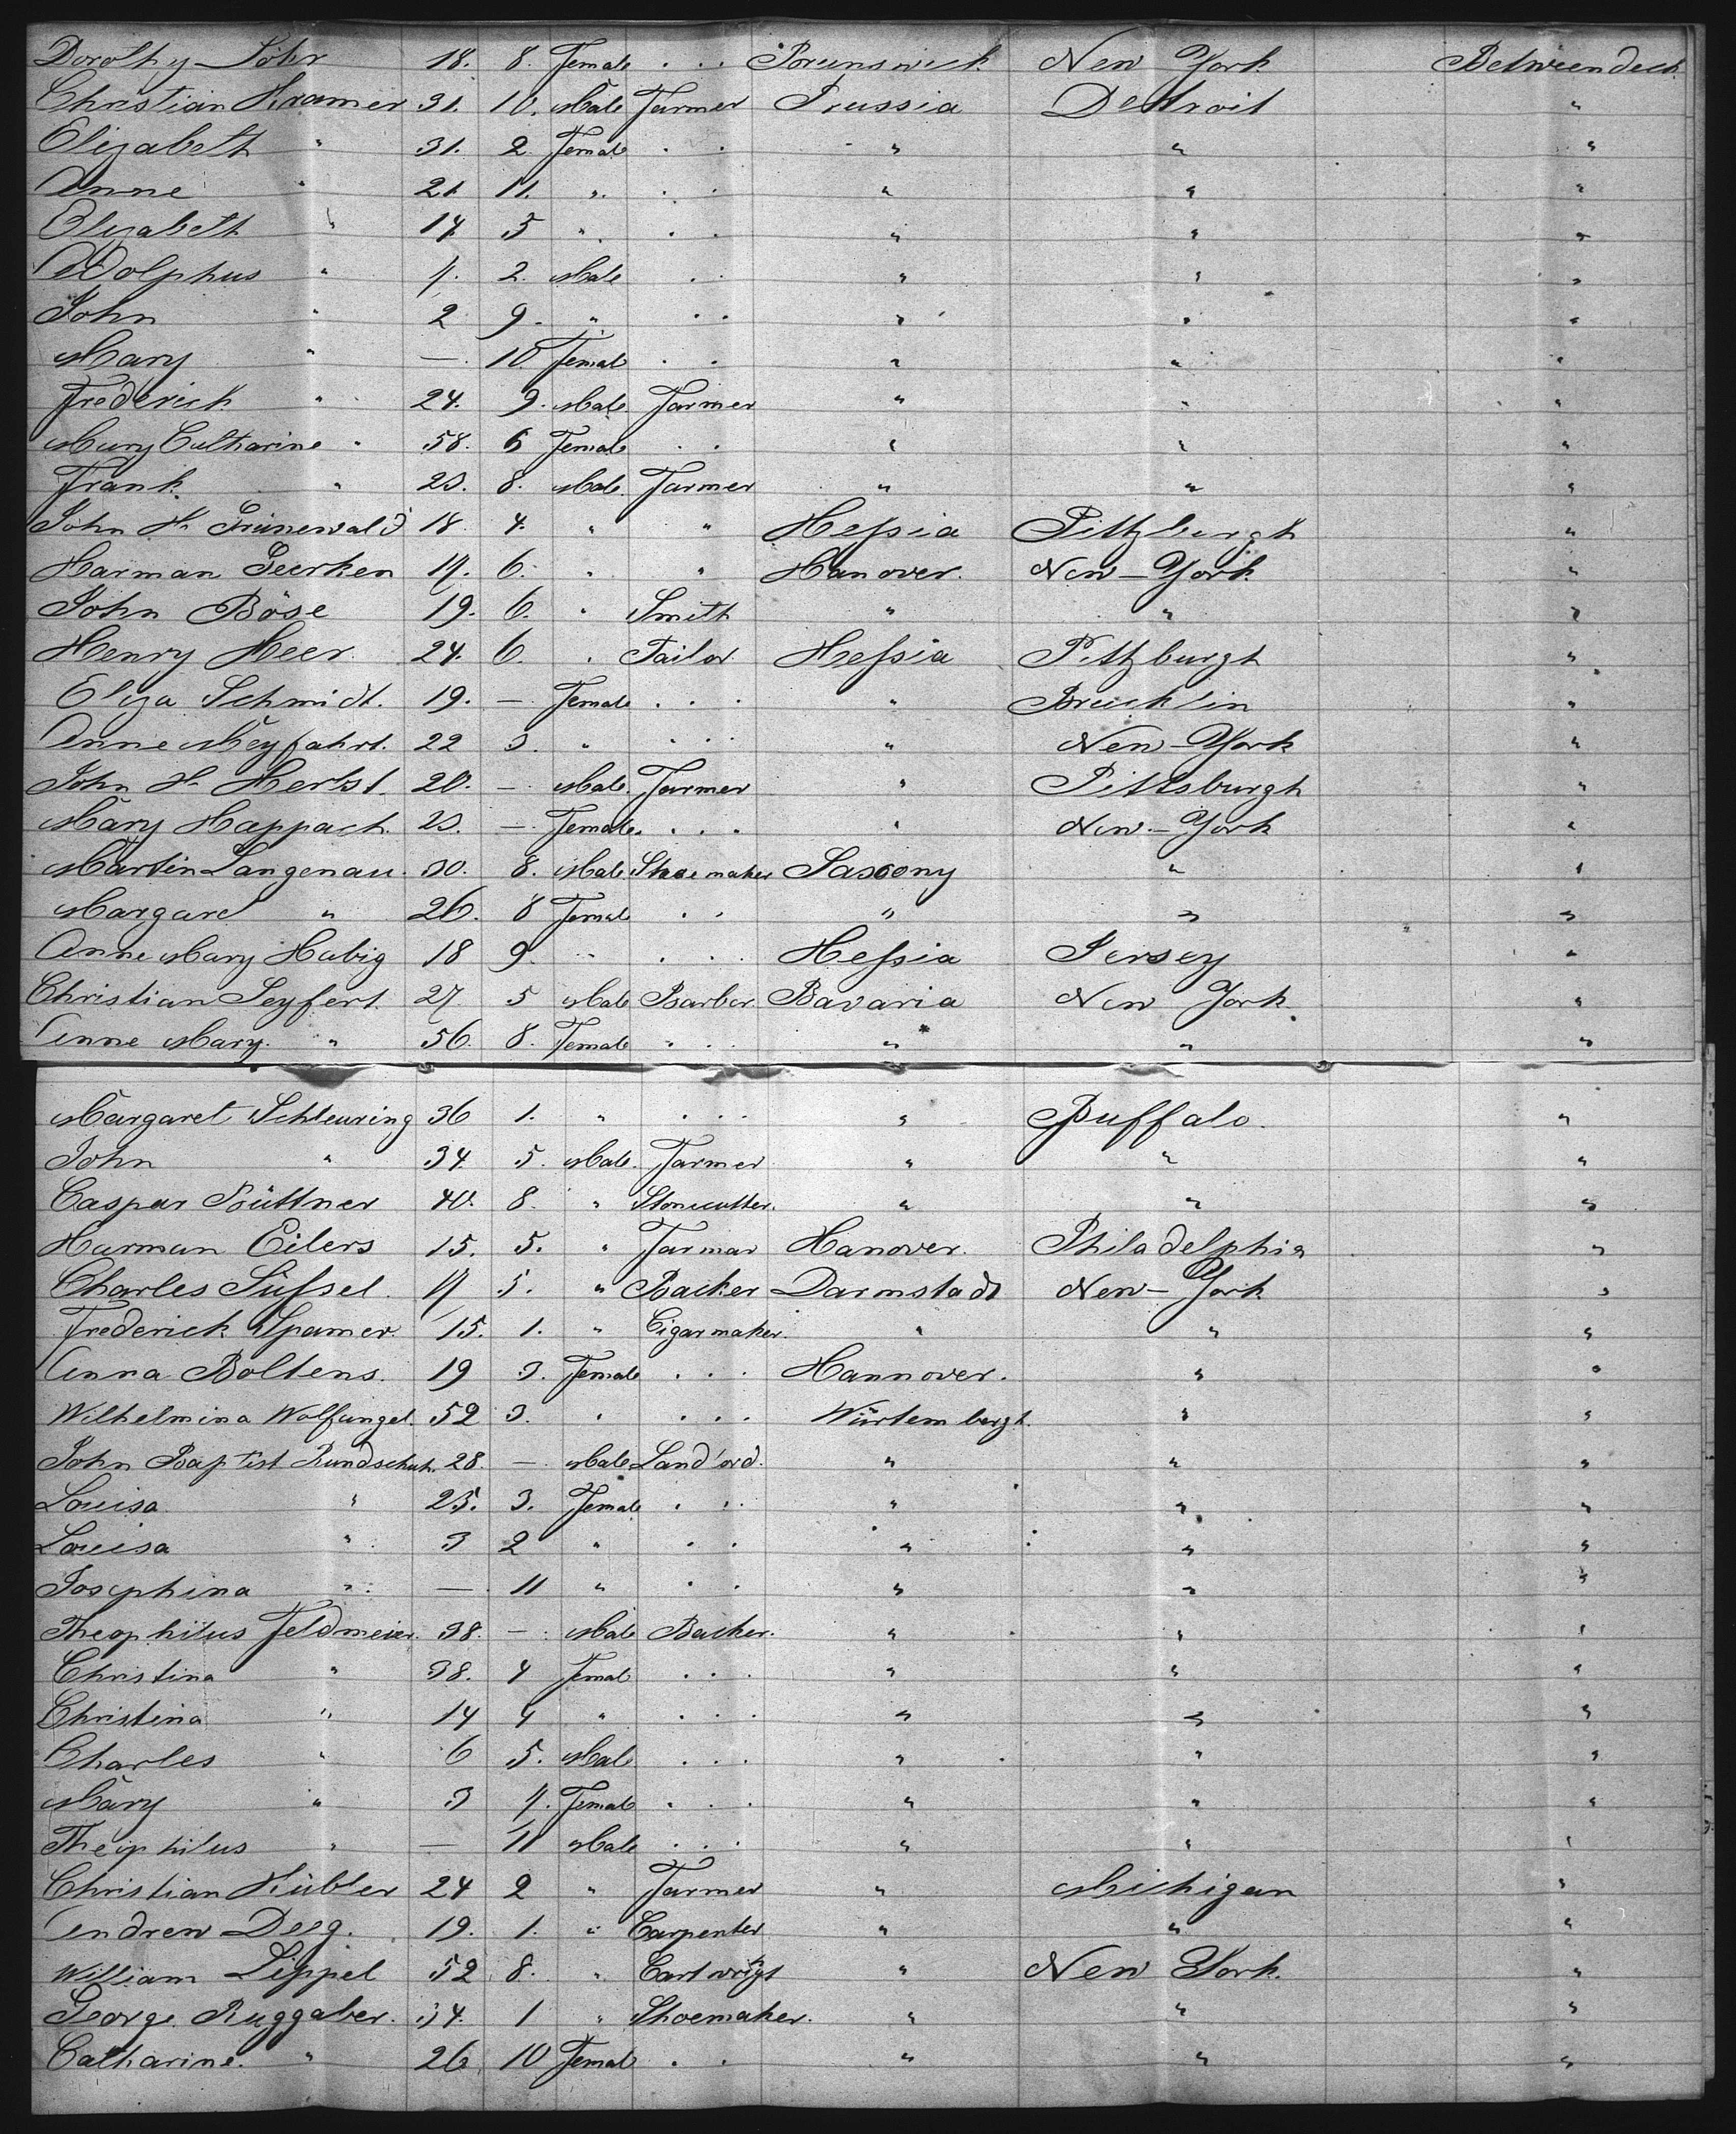 Dorothy Löhr 18. 8. Female . . . Brunswick New York Betweendeck
Christian Kramer 31. 10. Male Farmer Prussia Detroit "
Elizabeth " 31. 2. Female . . " " "
Anne " 21. 11. " . . " " "
Elizabeth " 14 5 " . . " " "
Adolphus " 4. 2. Male . . " " "
John " 2 9. " . . " " "
Mary " — 10 Femal . . " " "
Frederick " 24. 9. Male Farmer " " "
Mary Catharine " 58. 6 Female . . " " "
Frank " 23. 8. Male Farmer " " "
John H. Grünewald 18 4. " " Hessia Pittzburgh "
Harman Geerken 17. 6. " " Hanover. New-York "
John Böse 19. 6. " Smith " " "
Henry Heer. 24. 6. " Tailor Hessia Pittzburgh "
Eliza Schmidt. 19. — Female . . . " Breucklin "
Anne Meyfahrt. 22 3. " . . . " New-York "
John H. Herbst. 20. — Male Farmer " Pittsburgh "
Mary Happach. 23. — Female . . . " New-York "
Martin Langenau. 30. 8. Male Shoemaker Saxony " "
Margaret " 26. 8 Femal . . " " "
Anne Mary Habig 18 9. " . . . Hessia Jersey "
Christian Seyfert. 27 5 Male Barber Bavaria New York. "
Anne Mary. " 56. 8. Female . . . " " "
Margaret Schleuring 36 1. " . . . " Buffalo. "
John " 34. 5. Male. Farmer " " "
Caspar Büttner 40. 8. " Stonecutter. " " "
Harman Eilers 15. 5. " Farmar Hanover. Philadelphia "
Charles Süssel. 17 5. " Backer Darmstadt New-York "
Frederick Spamer. 15. 1. " Cigarmaker. " " "
Anna Boltens. 19 3. Female . . . Hannover. " "
Wilhelmina Wolfangel. 52 3. " . . . Würtembergh. " "
John Baptist Rundschuh. 28. — Male Landlord. " " "
Louisa " 25. 3. Female . . . " " "
Louisa " 3 2 " . . " " "
Josephina " — 11 " . . " " "
Theophilus Feldmeier. 38. — Male Backer. " " "
Christina " 38. 4 Femal . . . " " "
Christina " 14 4 " . . . " " "
Charles " 6 5. Male . . . " " "
Mary " 3 4. Female . . . " " "
Theophilus " — 11 Male . . . " " "
Christian Kübler 24 2 " Farmer " Michigan "
Andrew Deeg. 19. 1. " Carpenter " " "
William Lippel 52 8. " Cartwrigt " New York. "
George Ruggaber. 34. 1 " Shoemaker. " " "
Catharine. " 26. 10 Femal . . " " "